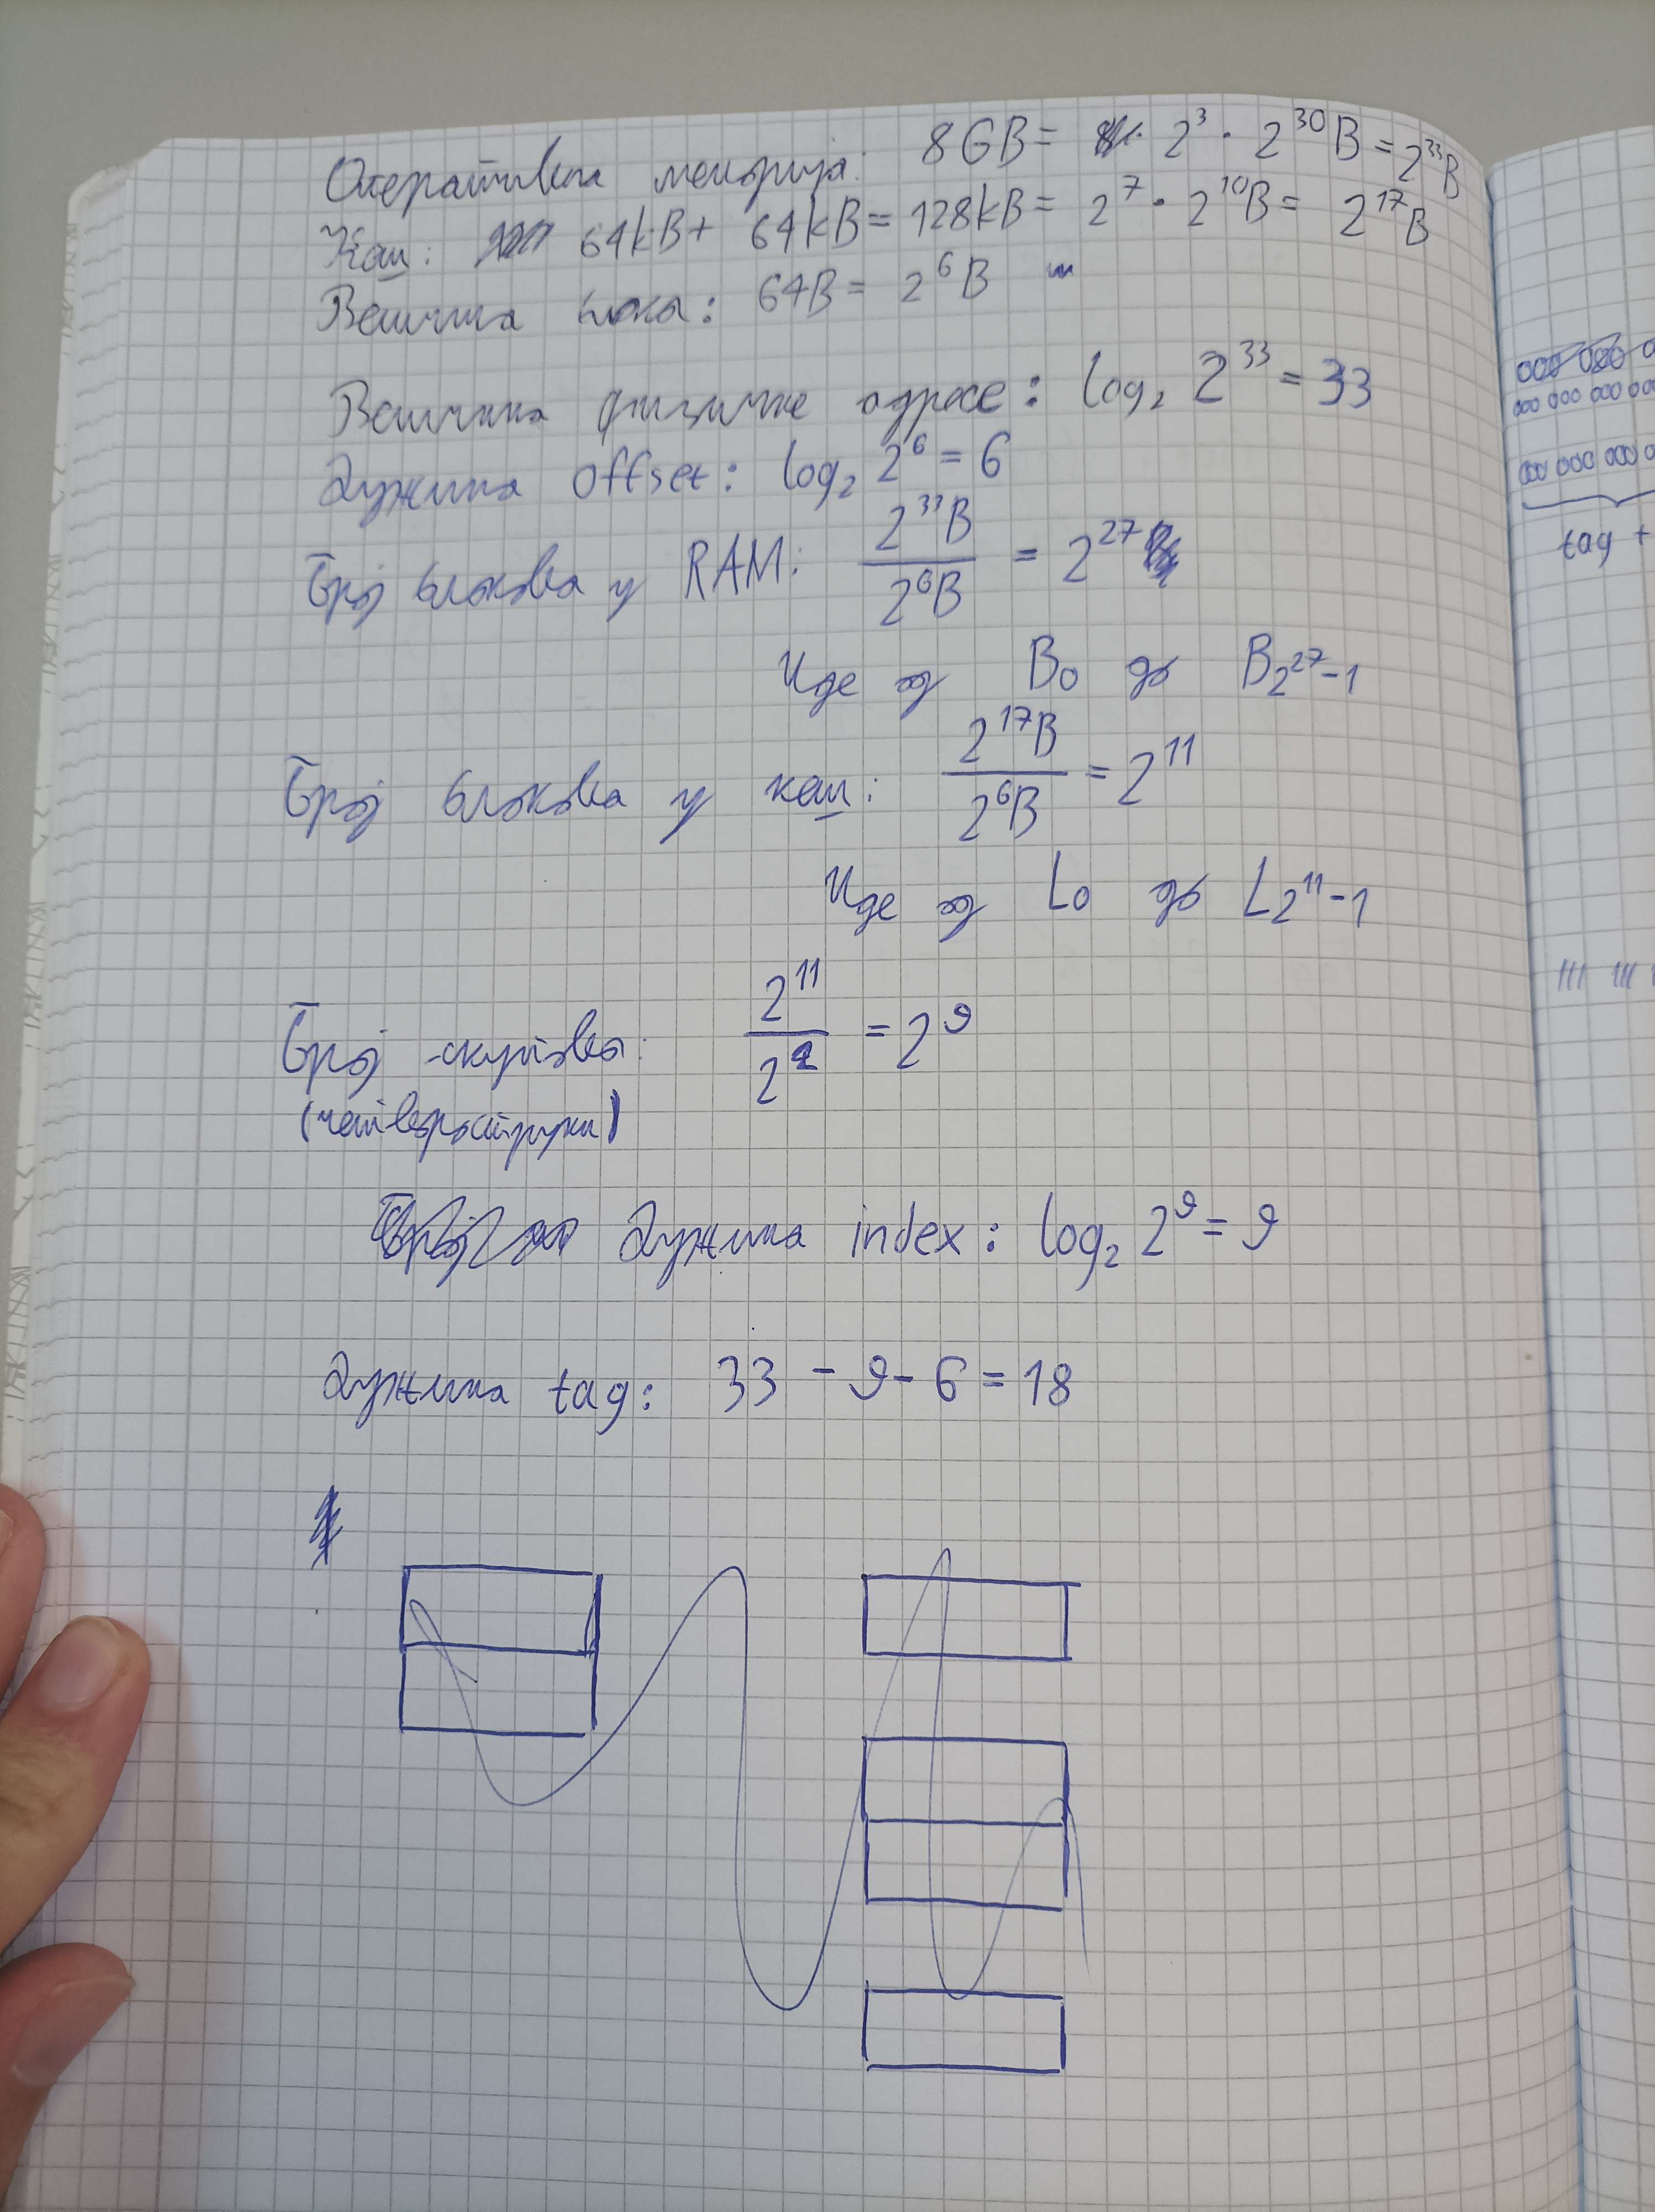 Оперативна меморија: 8GB = 2³ · 2³⁰B = 2³³B
Кеш: 64kB + 64kB = 128kB = 2⁷ · 2¹⁰B = 2¹⁷B
Величина блока: 64B = 2⁶B
Величина физичке адресе: log₂ 2³³ = 33
Дужина offset: log₂ 2⁶ = 6
Број блокова у RAM: 2³³B / 2⁶B = 2²⁷
Иде од B₀ до B₂²⁷₋₁
Број блокова у кеш: 2¹⁷B / 2⁶B = 2¹¹
Иде од L₀ до L₂¹¹₋₁
Број скупова: 2¹¹ / 2² = 2⁹
(четвероструки)
Дужина index: log₂ 2⁹ = 9
Дужина tag: 33 - 9 - 6 = 18
000 000 0
000 000 000 000
000 000 000 0
tag +
111 111 1